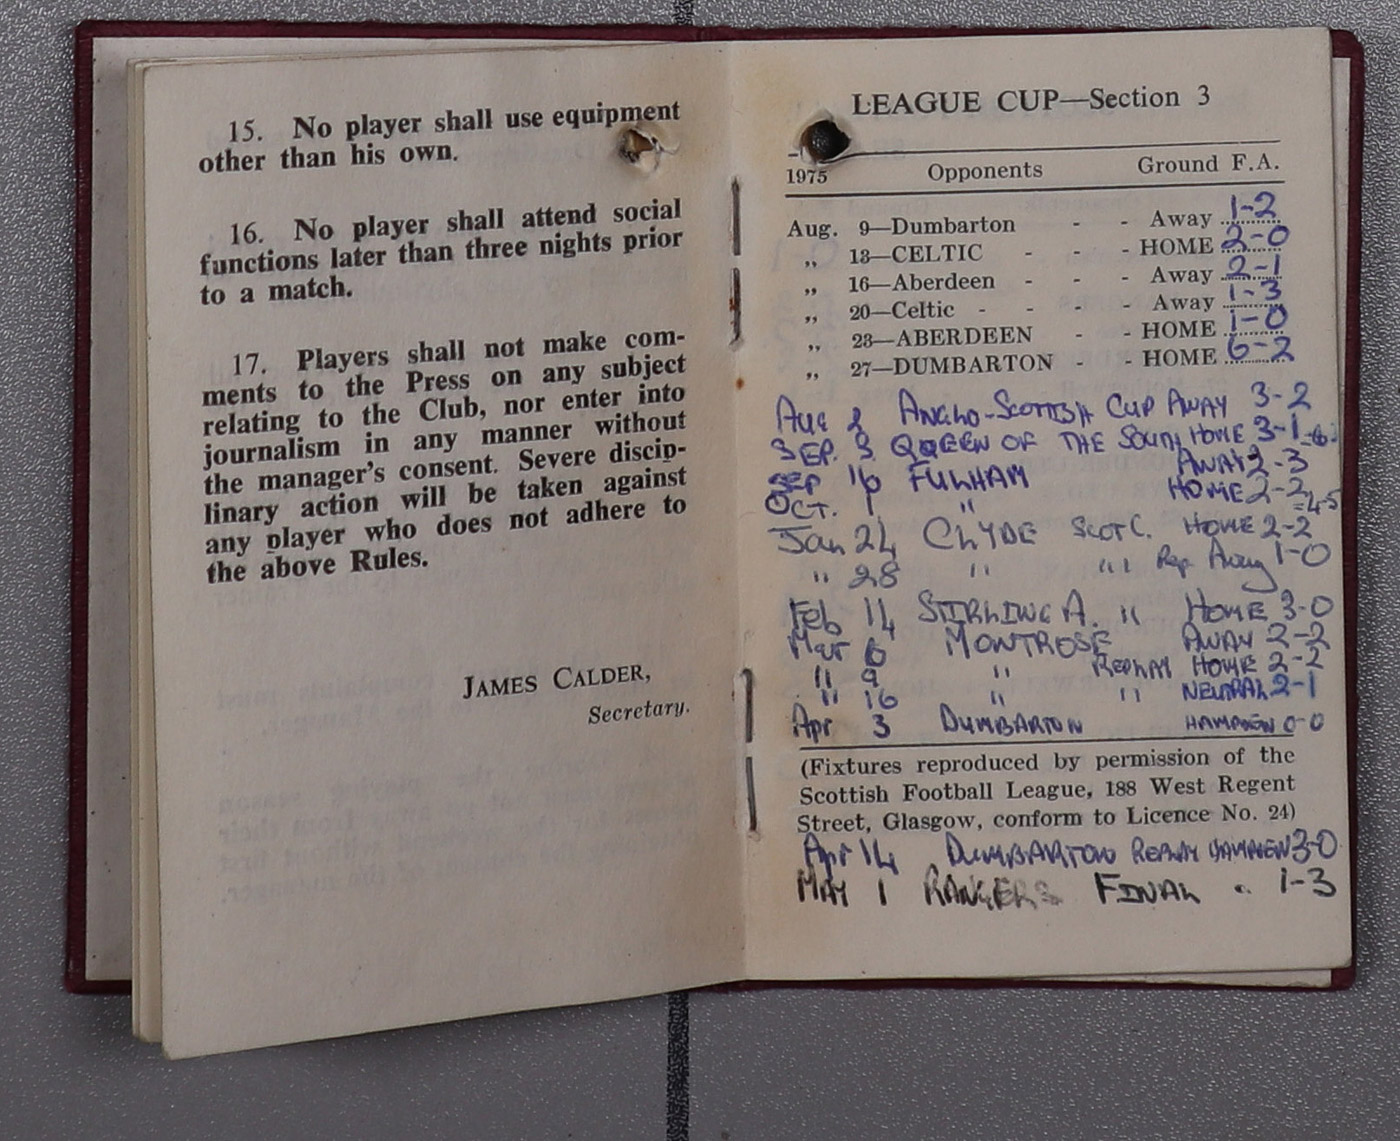 15. No player shall use equipment
other than his own.
16. No player shall attend social
functions later than three nights prior
to a match.
17. Players shall not make com-
ments to the Press on any subject
relating to the Club, nor enter into
journalism in any manner without
the manager's consent. Severe discip-
linary action will be taken against
any player who does not adhere to
the above Rules.
JAMES CALDER,
Secretary.
LEAGUE CUP—Section 3
1975 Opponents Ground F.A.
Aug. 9—Dumbarton - - Away 1-2
„ 13—CELTIC - - - HOME 2-0
„ 16—Aberdeen - - - Away 2-1
„ 20—Celtic - - - - Away 1-3
„ 23—ABERDEEN - - HOME 1-0
„ 27—DUMBARTON - - HOME 6-2
AUG 2 ANGLO-SCOTTISH CUP AWAY 3-2
SEP. 3 QUEEN OF THE SOUTH HOME 3-1
SEP 16 FULHAM AWAY 2-3
OCT. 1 " HOME 2-2 =4-5
Jan 24 CLYDE SCOT C. HOME 2-2
" 28 " " Rep Away 1-0
Feb 14 STIRLING A. " HOME 3-0
Mar 6 MONTROSE AWAY 2-2
" 9 " REPLAY HOME 2-2
" 16 " " NEUTRAL 2-1
Apr 3 DUMBARTON HAMPDEN 0-0
(Fixtures reproduced by permission of the
Scottish Football League, 188 West Regent
Street, Glasgow, conform to Licence No. 24)
Apr 14 DUMBARTON REPLAY HAMPDEN 3-0
MAY 1 RANGERS FINAL " 1-3